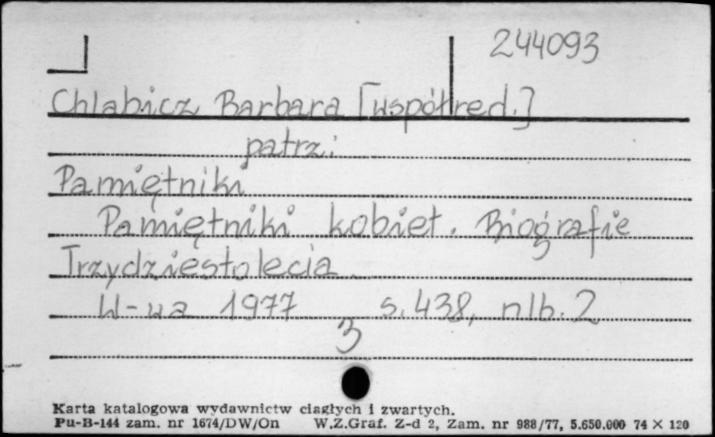 244093
Chlabicz Barbara [współred.]
patrz:
Pamiętniki
Pamiętniki kobiet. Biografie
Trzydziestolecia
W-wa 1977 s. 438, nlb. 2
3
Karta katalogowa wydawnictw ciągłych i zwartych.
Pu-B-144 zam. nr 1674/DW/On W.Z.Graf. Z-d 2, Zam. nr 988/77, 5.650.000 74 × 120